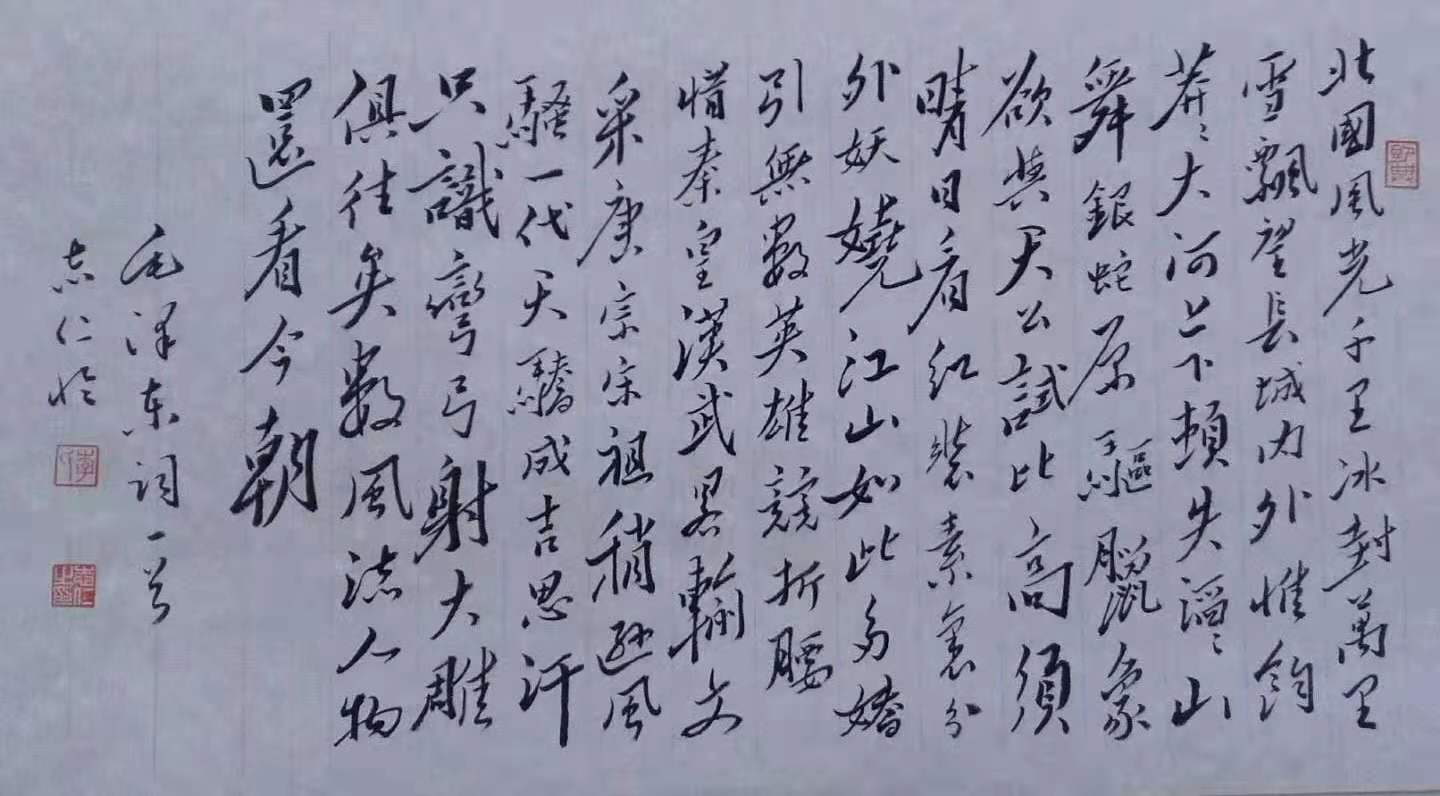 北國風光千里冰封萬里
雪飄望長城内外惟餘
莽〻大河上下頓失滔〻山
舞銀蛇原驅臘象
欲與天公試比高須
晴日看紅裝素裹分
外妖嬈江山如此多嬌
引無數英雄競折腰
惜秦皇漢武畧輸文
采唐宗宋祖稍遜風
騷一代天驕成吉思汗
只識彎弓射大雕
俱往矣數風流人物
還看今朝
毛澤東詞一首
志仁